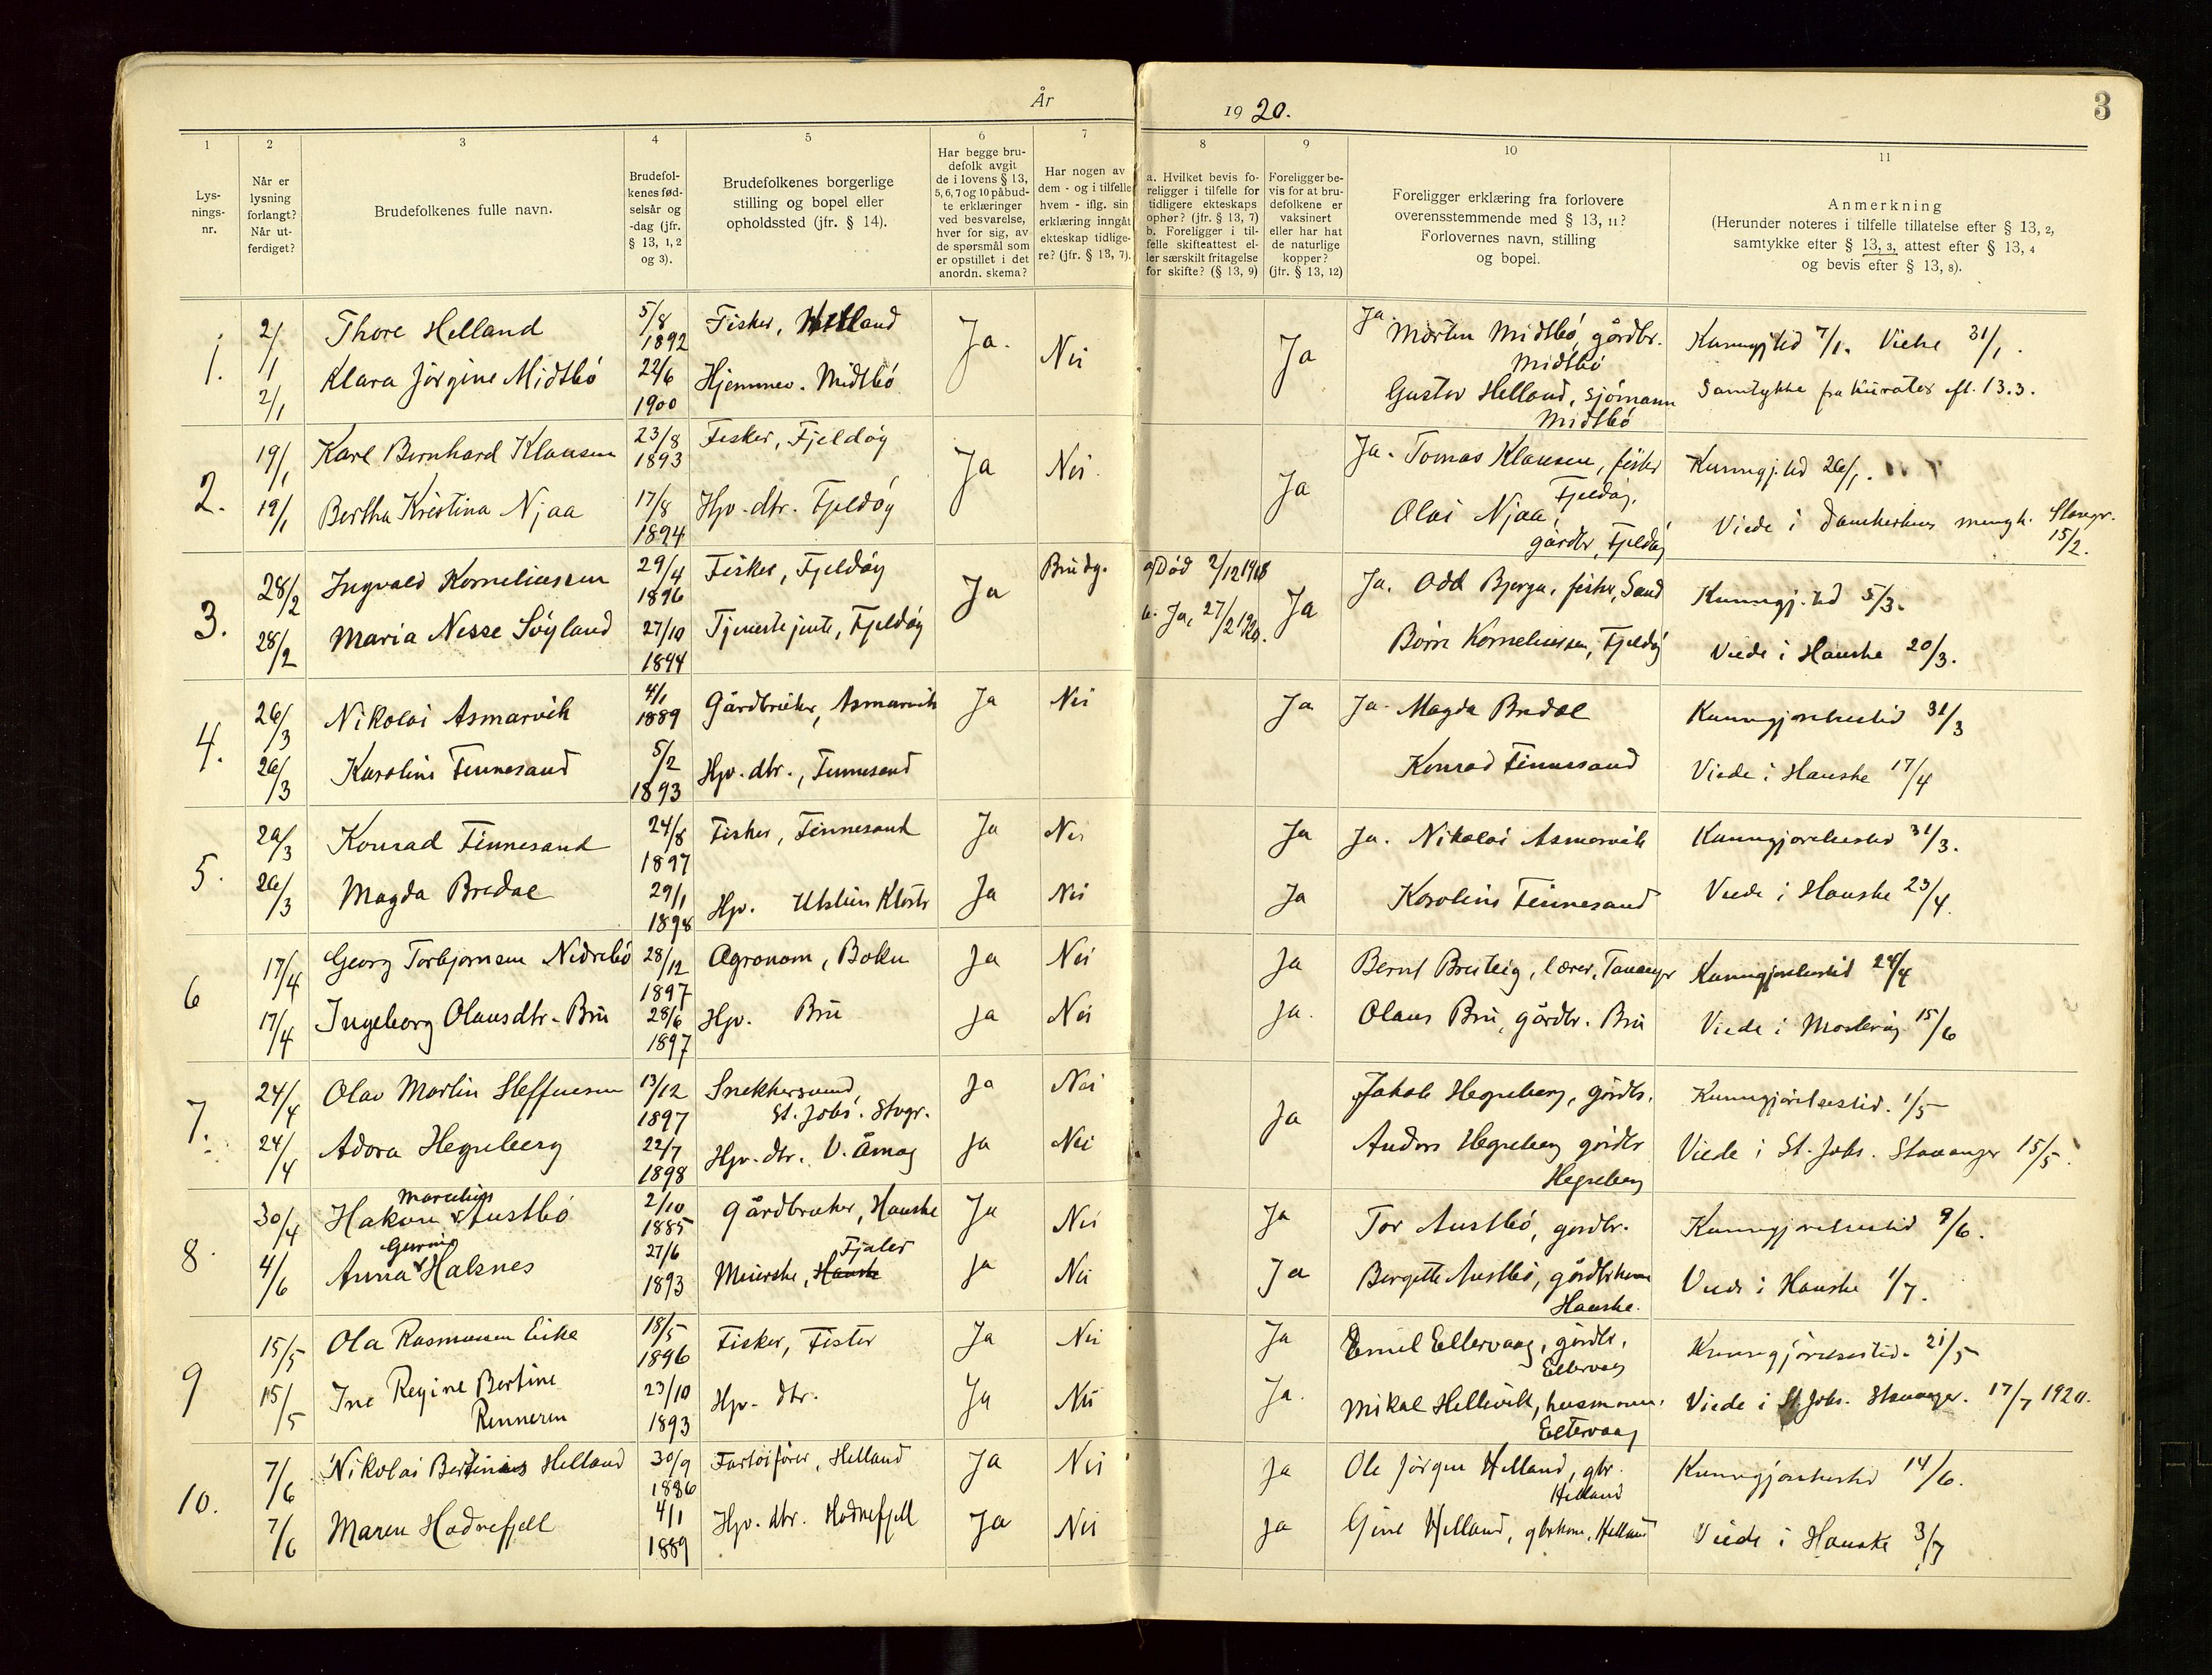 År
1920.
3
1
2
3
4
5
6
7
8
9
10
11
Lys-
nings-
nr.
Når er
lysning
forlangt?
Når ut-
ferdiget?
Brudefolkenes fulle navn.
Brudefol-
kenes fød-
selsår og
-dag (jfr.
§ 13, 1, 2
og 3).
Brudefolkenes borgerlige
stilling og bopel eller
opholdssted (jfr. § 14).
Har begge bru-
defolk avgit
de i lovens § 13,
5, 6, 7 og 10 påbud-
te erklæringer
ved besvarelse,
hver for sig, av
de spørsmål som
er opstillet i det
anordn. skema?
Har nogen av
dem - og i tilfelle
hvem - iflg. sin
erklæring inngåt
ekteskap tidlige-
re? (jfr. § 13, 7).
a. Hvilket bevis fo-
religger i tilfelle for
tidligere ekteskaps
ophør? (jfr. § 13, 7)
b. Foreligger i til-
felle skifteattest el-
ler særskilt fritagelse
for skifte? (§ 13, 9)
Foreligger be-
vis for at bru-
defolkene er
vaksinert
eller har hat
de naturlige
kopper?
(jfr. § 13, 12)
Foreligger erklæring fra forlovere
overensstemmende med § 13, 11?
Forlovernes navn, stilling
og bopel.
Anmerkning
(Herunder noteres i tilfelle tillatelse efter § 13, 2,
samtykke efter § 13, 3, attest efter § 13, 4
og bevis efter § 13, 8).
1. 2/1 Thore Helland 5/8 1892 Fisker, Helland Ja. Nei Ja Ja. Morten Midtbö, gårdbr. Midtbö Kunngj.tid 7/1. Viede 31/1.
2/1 Klara Jörgine Midtbö 22/6 1900 Hjemmev. Midtbö Gustav Helland, Sjömann Midtbö Samtykke fra kurator eft. 13.3.
2. 19/1 Karl Bernhard Klausen 23/8 1893 Fisker, Fjeldöy Ja Nei. Ja Ja. Tomas Klausen, fisker Fjeldöy, Kunngj.tid 26/1.
19/1 Bertha Kristina Njaa 17/8 1894 Hjv. dtr. Fjeldöy Olai Njaa, gårdbr, Fjeldöy Viede i menigh. Stavgr. 15/2.
3. 28/2 Ingvald Korneliussen 29/4 1896 Fisker, Fjeldöy Ja Brudg. a. Död 2/12 1918 Ja Ja. Odd Bjerga, fisker, Sand Kunngj.tid 5/3.
28/2 Maria Nesse Söyland 27/10 1894 Tjenestejente, Fjeldöy b. Ja, 27/2 1920. Börre Korneliussen, Fjeldöy Viede i Hauske 20/3.
4. 26/3 Nikolai Asmarvik 4/1 1889 Gårdbruker, Asmarvik Ja Nei Ja Ja. Magda Bredal Kunngjörelsestid 31/3
26/3 Karoline Finnesand 5/2 1893 Hjv. dtr., Finnesand Konrad Finnesand Viede i Hauske 17/4
5. 26/3 Konrad Finnesand 24/8 1897 Fisker, Finnesand Ja Nei Ja Ja. Nikolai Asmarvik Kunngjörelsestid 31/3.
26/3 Magda Bredal 29/1 1898 Hjv. Utstein Kloster Ja Nei Ja Karoline Finnesand Viede i Hauske 23/4.
6 17/4 Georg Torbjornsen Nedrebö 28/12 1897 Agronom, Bokn Ja Nei Ja Bernt Breiteig, lærer, Tananger Kunngjörelsestid 24/4
17/4 Ingeborg Olausdtr. Bru 28/6 1897 Hjv. Bru Ja Nei Ja. Olaus Bru, gårdbr. Bru Viede i Mosteröy 15/6
7. 24/4 Olav Martin Steffensen 13/12 1897 Snekkersvend, St. Johs. Stvgr. Ja Nei Ja Jakob Hegreberg, gårdbr. Kunngjörelsestid. 1/5
24/4 Adora Hegreberg 22/7 1898 Hjv. dtr. V. Åmöy Ja Nei Anders Hegreberg gårdbr Hegreberg Viede i St. Johs. Stavanger 15/5.
8. 30/4 Hakon Marselius Austbö 2/10 1885 Gårdbruker, Hauske Ja Nei Ja Tor Austbö, gårdbr. Kunngjörelsestid 9/6.
4/6 Anna Gurine Halsnes 27/6 1893 Meierske, Hauske Fjaler Ja Nei Ja Bergitte Austbö, gårdbrkone Hauske. Viede i Hauske 1/7.
9 15/5 Ola Rasmussen Eike 18/5 1896 Fisker, Fister Ja Nei Ja Emil Eltervaag, gårdbr, Eltervaag Kunngjörelsestid. 21/5
15/5 Ine Regine Bertine Renneren 23/10 1893 Hjv. dtr. Ja Nei Ja. Mikal Hellevik, husmann. Eltervaag Viede i St. Johs. Stavanger. 17/7 1920.
10. 7/6 Nikolai Bertinius Helland 30/9 1886 Fartöiförer, Helland Ja Nei Ja Ole Jörgen Helland, gbr. Helland Kunngjörelsestid 14/6.
7/6 Maren Hodnefjell 4/1 1889 Hjv. dtr. Hodnefjell Ja Nei Ja Gine Helland, gbrkone, Helland Viede i Hauske 3/7